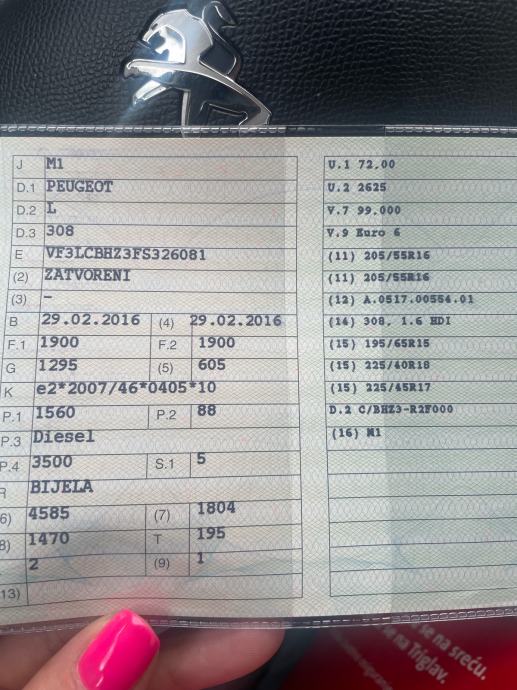 J M1
D.1 PEUGEOT
D.2 L
D.3 308
E VF3LCBHZ3FS326081
(2) ZATVORENI
(3) -
B 29.02.2016 (4) 29.02.2016
F.1 1900 F.2 1900
G 1295 (5) 605
K e2*2007/46*0405*10
P.1 1560 P.2 88
P.3 Diesel
P.4 3500 S.1 5
R BIJELA
6) 4585 (7) 1804
8) 1470 T 195
2 (9) 1
13)
U.1 72,00
U.2 2625
V.7 99,000
V.9 Euro 6
(11) 205/55R16
(11) 205/55R16
(12) A.0517.00554.01
(14) 308, 1.6 HDI
(15) 195/65R15
(15) 225/40R18
(15) 225/45R17
D.2 C/BHZ3-R2F000
(16) M1
se na sreću.
se na Triglav.